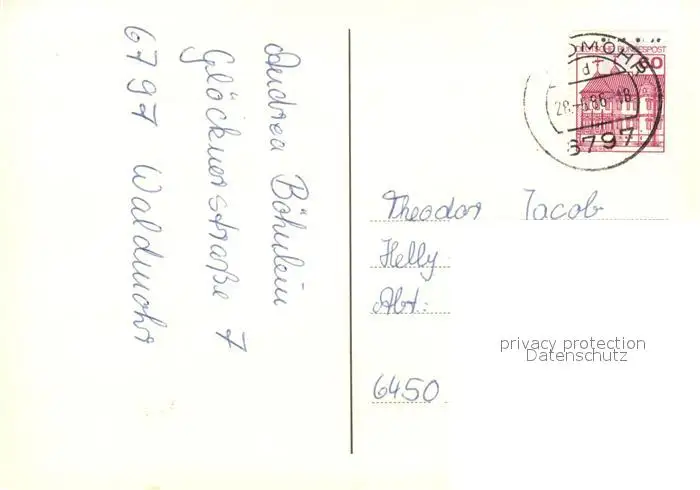 Andrea Böhnlein
Glöcknerstraße 7
6797 Waldmohr
DEUTSCHE BUNDESPOST
60
WALDMOHR
d
28.-5.86-18
6797
Theodor Jacob
Helly
Abt.:
6450
privacy protection
Datenschutz